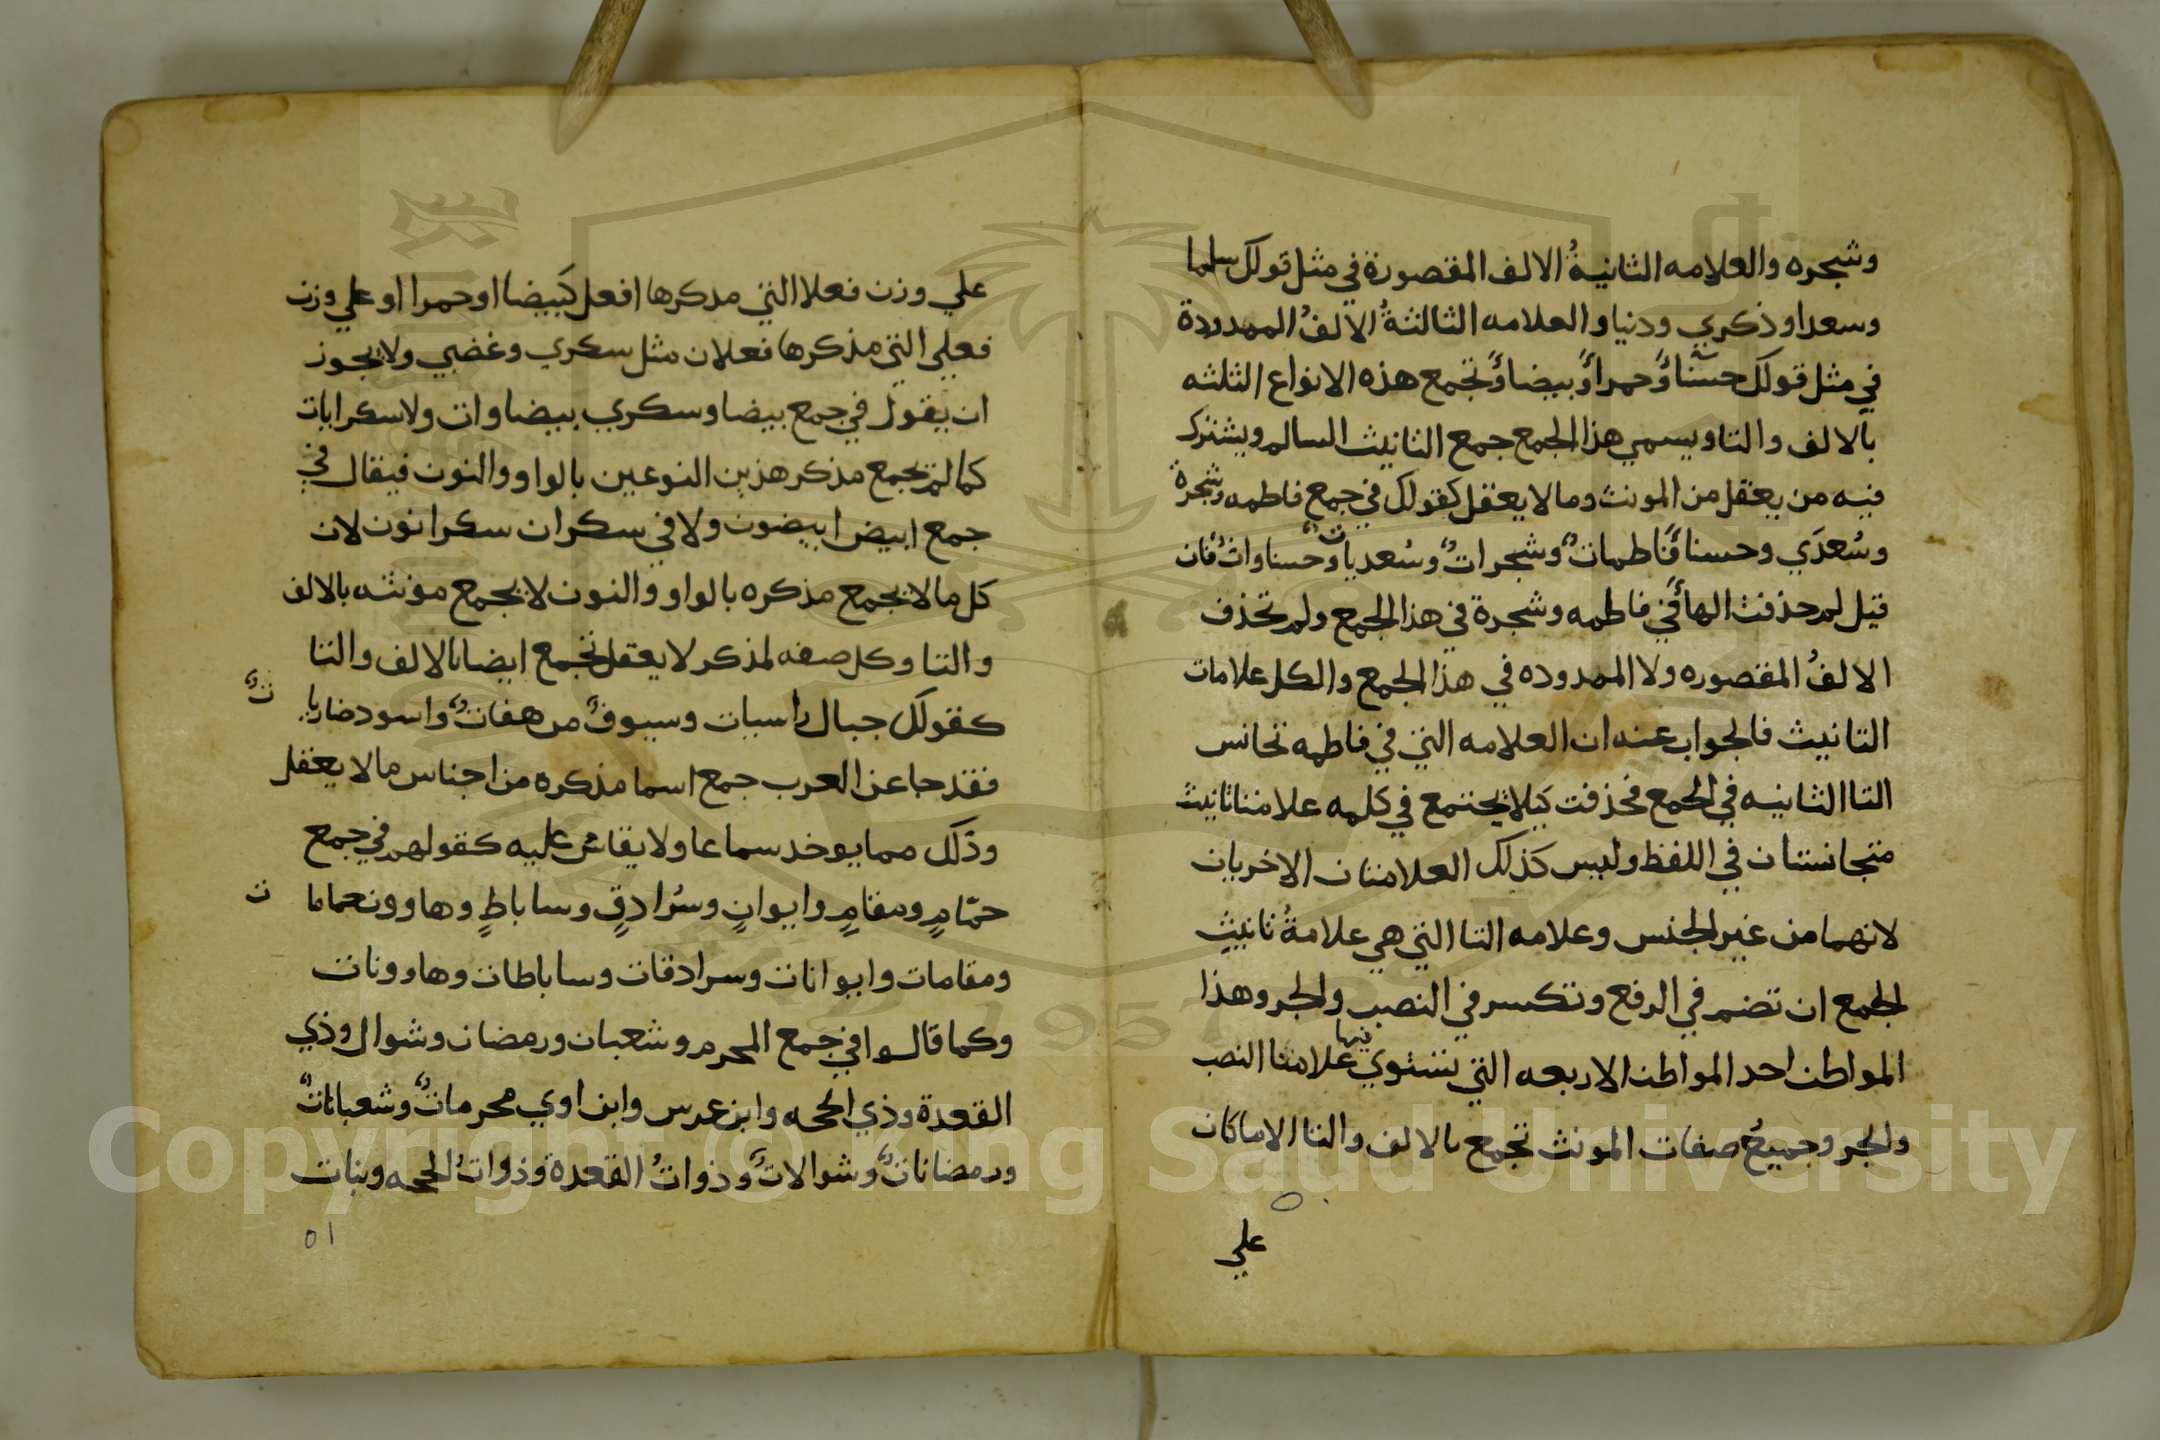 وشجره والعلامه الثانيةُ الالف المقصورة في مثل قولك سلما
وسعدا وذكري ودنيا والعلامه الثالثةُ الالفُ الممدودة
في مثل قولك حسنا وحمرا وبيضا وتجمع هذه الانواع الثلثه
بالالف والتا ويسمي هذا الجمع جمع التانيث السالم ويشترك
فيه من يعقل من المونث وما لا يعقل كقولك في جمع فاطمه وشجرة
وسُعدَي وحسنا فاطماتٌ وشجراتٌ وسُعدياتٌ وحسناواتٌ فان
قيل لم حذفت الها في فاطمه وشجرة في هذا الجمع ولم تحذف
الالفُ المقصوره ولا الممدوده في هذا الجمع والكل علامات
التانيث فالجواب عنه ان العلامه التي في فاطمه تجانس
التا الثانيه في الجمع فحذفت كيلا يجتمع في كلمه علامتا تانيث
متجانستان في اللفظ وليس كذلك العلامتان الاخريان
لانهما من غير الجنس وعلامه التا التي هي علامةُ تانيثِ
الجمع ان تضم في الرفع وتكسر في النصب والجر وهذا
المواطن احد المواطن الاربعه التي تستوي فيها علامتا النصب
والجر وجميعُ صفات المونث تجمع بالالف والتا الا ما كان
علي
علي وزن فعلا التي مدكرها افعل كبيضا او حمرا او علي وزن
فعلي التي مذكرها فعلان مثل سكري وغضبي ولا يجوز
ان يقول في جمع بيضا وسكري بيضاوات ولا سكرايات
كما لم يجمع مذكر هذين النوعين بالواو والنون فيقال في
جمع ابيض ابيضون ولا في سكران سكرانون لان
كل ما لا يجمع مذكره بالواو والنون لا يجمع مونثه بالالف
والتا وكل صفه لمذكر لا يعقل تجمع ايضا بالالف والتا
كقولك جبال راسيات وسيوفٌ مرهفاتٌ واسود ضاريات
فقد جا عن العرب جمع اسما مذكره من اجناس ما لا يعقل
وذلك مما يوخد سماعا ولا يقاس عليه كقولهم في جمع
حمّامٍ ومقامٍ وايوانٍ وسُرادقٍ وساباطٍ وهاوون حمامات
ومقامات وايوانات وسرادقات وساباطات وهاوونات
وكما قالوا في جمع المحرم وشعبان ورمضان وشوال وذي
القعدة وذي الحجه وابن عرس وابن اوي محرماتٌ وشعباناتٌ
ورمضاناتٌ وشوالاتٌ وذواتُ القعدة وذواتُ الحجه وبنات
٥١
Copyright © King Saud University
1957